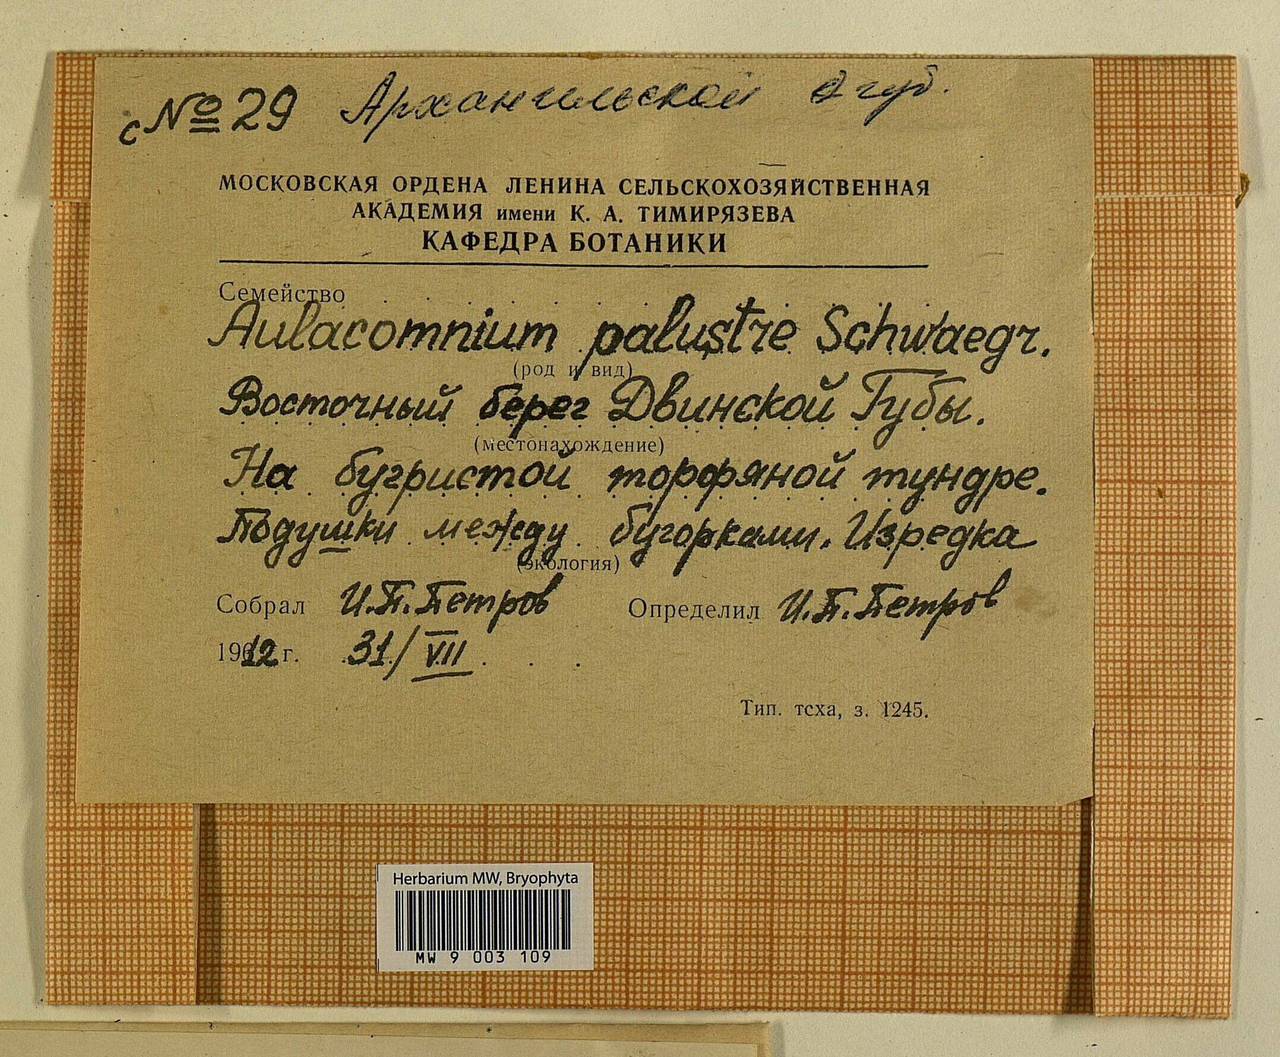 с №29 Архангельской губ.
МОСКОВСКАЯ ОРДЕНА ЛЕНИНА СЕЛЬСКОХОЗЯЙСТВЕННАЯ
АКАДЕМИЯ имени К. А. ТИМИРЯЗЕВА
КАФЕДРА БОТАНИКИ
Семейство
Aulacomnium palustre Schwaegr.
(род и вид)
Восточный берег Двинской Губы.
(местонахождение)
На бугристой торфяной тундре.
Подушки между бугорками. Изредка
(экология)
Собрал И.П.Петров Определил И.П.Петров
1912 г. 31/VII
Тип. тсха, з. 1245.
Herbarium MW, Bryophyta
MW 9 003 109